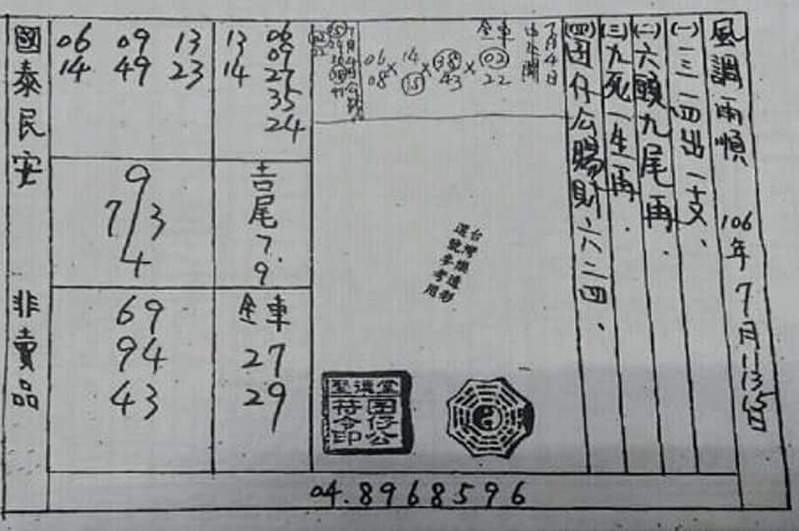 風調雨順 106年7月11 13 15日
(一)三一四出一支、
(二)六頭九尾再、
(三)九死一生再、
(四)囝仔公賜財六六二四、
7月4日
全車
06 14 38 02
08 15 43 22
× × ×
台灣樂透彩
選號參考用
聖德堂
囝仔公
符令印
13 06
14 09
27
35
24
吉尾
7.9
全車
27
29
06 09 13
14 49 23
9
7/3
4
69
94
43
國泰民安
非賣品
04.8968596